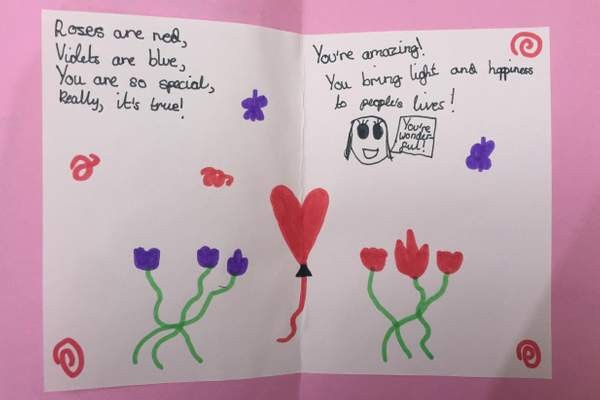 Roses are red,
Violets are blue,
You are so special,
Really, it's true!
You're amazing!
You bring light and happiness
to people's lives!
You're
wonder-
ful!